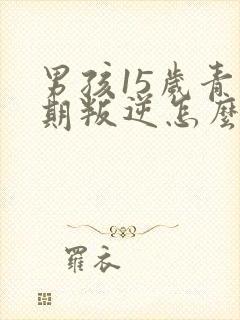 男孩15歲青
期叛逆怎麼
羅衣